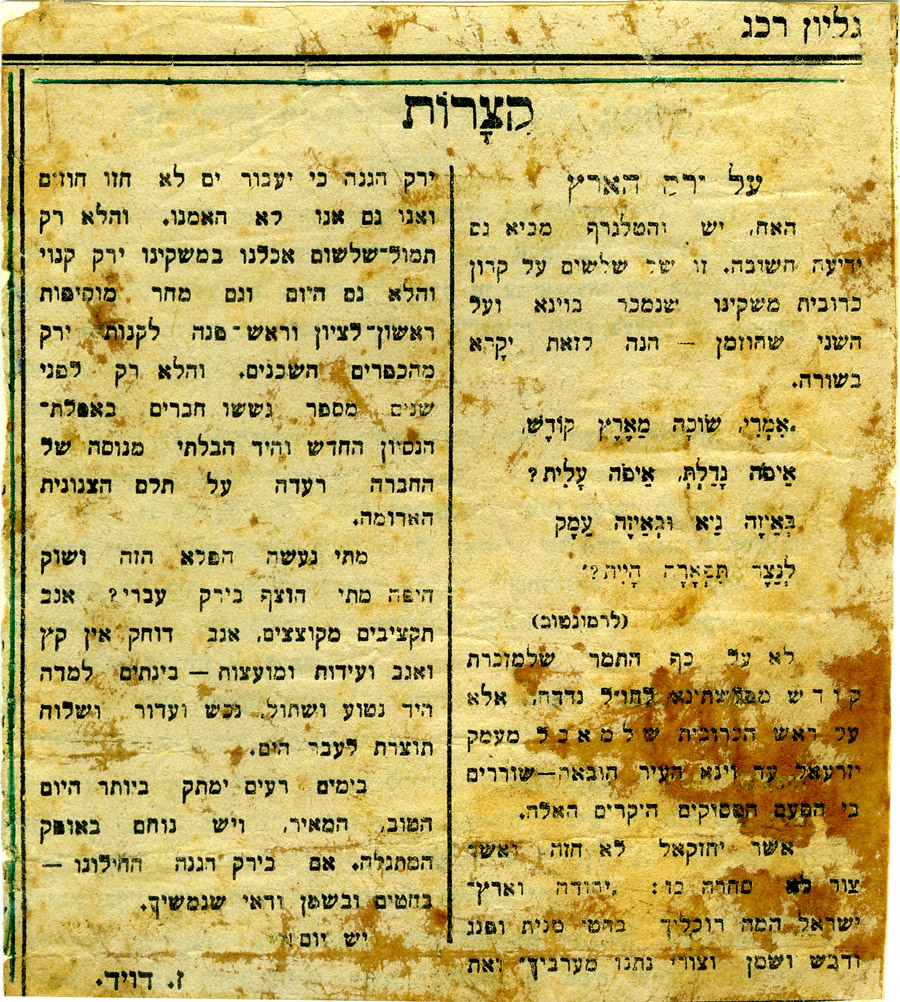 גליון רכג
קִצָּרוֹת
על ירק הארץ
האח, יש והטלגרף מביא גם
ידיעה חשובה. זו של שלשים על קרון
כרובית משקינו שנמכר בוינא ועל
השני שהוזמן — הנה לזאת יִקָּרא
בשורה.
„אִמְרִי, שׂוֹכָה מֵאֶרֶץ קוֹדֶשׁ,
אֵיפֹה גָדַלְתְּ, אֵיפֹה עָלִית?
בְּאֵיזֶה גַיְא וּבְאֵיזֶה עֵמֶק
לְנֵצֶר תִּפְאָרָה הָיִית?״
(לרמונטוב)
לא על כף התמר שלמזכרת
קודש מפלשתינא לחו״ל נדדה, אלא
על ראש הכרובית שלמאכל מעמק
יזרעאל עד וינא העיר הובאה—שוררים
בי הפעם הפסוקים היקרים האלה.
אשר יחזקאל לא חזה ואשר
צור לא סחרה בו: „יהודה וארץ־
ישראל המה רוכליך בחטי מנית ופנג
ודבש ושמן וצורי נתנו מערביך״ ואת
ירק הגנה כי יעבור ים לא חזו חוזים
ואנו גם אנו לא האמנו. והלא רק
תמול־שלשום אכלנו במשקינו ירק קנוי
והלא גם היום וגם מחר מוסיפות
ראשון־לציון וראש־פנה לקנות ירק
מהכפרים השכנים. והלא רק לפני
שנים מספר גששו חברים באפלת־
הנסיון החדש והיד הבלתי מנוסה של
החברה רעדה על תלם הצנונית
הארומה.
מתי נעשה הפלא הזה ושוק
חיפה מתי הוצף בירק עברי? אגב
תקציבים מקוצצים, אגב דוחק אין קץ
ואגב ועידות ומועצות — בינתים למדה
היד נטוע ושתול, נכש ועדור ושלוח
תוצרת לעבר הים.
בימים רעים ימתק ביותר היום
הטוב, המאיר, ויש נוחם באופק
המתגלה. אם בירק הגנה החילונו —
בחטים ובשמן ודאי שנמשיך.
יש יום!
ז. דויד.